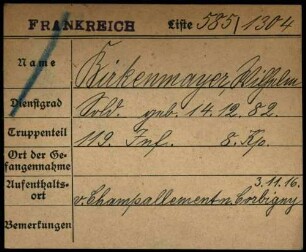 FRANKREICH Liste 585/1304
Name Birkenmayer, Wilhelm
Dienstgrad Sold. geb. 14.12.82.
Truppenteil 119. Inf. 8. Kp.
Ort der Ge-
fangennahme
Aufenthalts- 3.11.16.
ort v. Champallement n. Corbigny
Bemerkungen